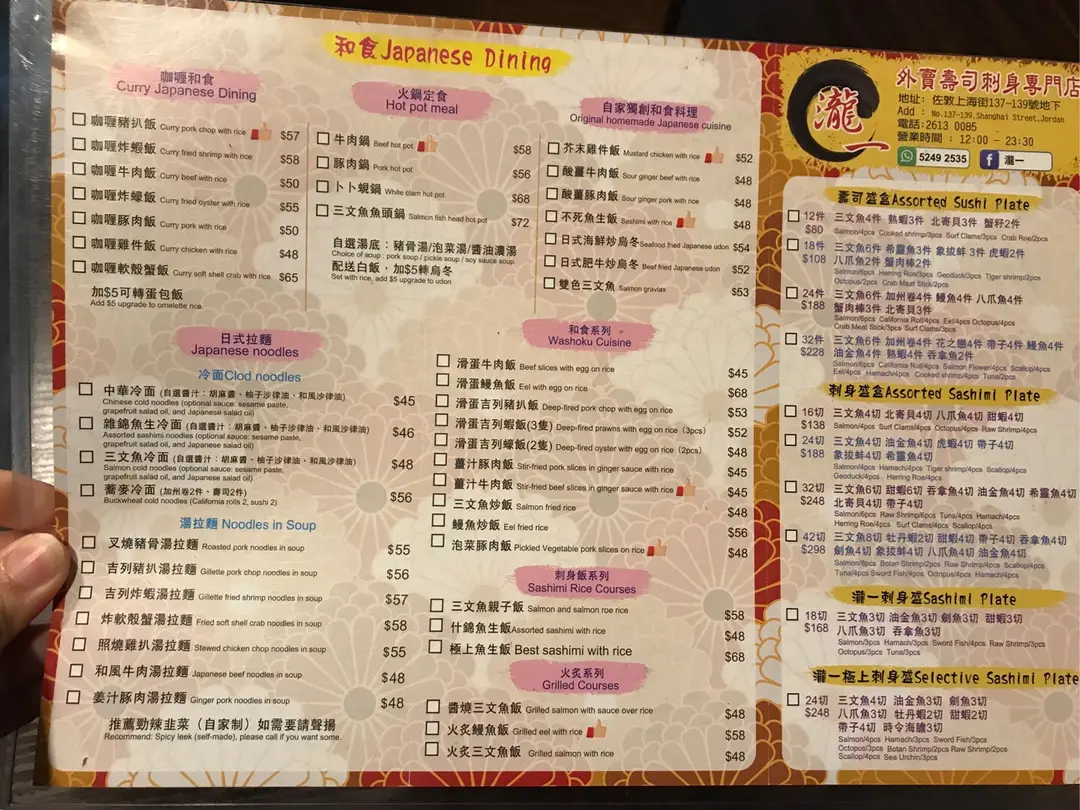 和食Japanese Dining
咖喱和食
Curry Japanese Dining
咖喱豬扒飯 Curry pork chop with rice $57
咖喱炸蝦飯 Curry fried shrimp with rice $58
咖喱牛肉飯 Curry beef with rice $50
咖喱炸蠔飯 Curry fried oyster with rice $55
咖喱豚肉飯 Curry pork with rice $50
咖喱雞件飯 Curry chicken with rice $48
咖喱軟殼蟹飯 Curry soft shell crab with rice $65
加$5可轉蛋包飯
Add $5 upgrade to omelette rice.
火鍋定食
Hot pot meal
牛肉鍋 Beef hot pot $58
豚肉鍋 Pork hot pot $56
卜卜蜆鍋 White clam hot pot $68
三文魚魚頭鍋 Salmon fish head hot pot $72
自選湯底：豬骨湯/泡菜湯/醬油濃湯
Choice of soup : pork soup / pickle soup / soy sauce soup
配送白飯，加$5轉烏冬
Set with rice, add $5 upgrade to udon
自家獨創和食料理
Original homemade Japanese cuisine
芥末雞件飯 Mustard chicken with rice $52
酸薑牛肉飯 Sour ginger beef with rice $48
酸薑豚肉飯 Sour ginger pork with rice $48
不死魚生飯 Sashimi with rice $48
日式海鮮炒烏冬Seafood fried Japanese udon $54
日式肥牛炒烏冬 Beef fried Japanese udon $52
雙色三文魚 Salmon graviax $53
日式拉麵
Japanese noodles
冷面Clod noodles
中華冷面 (自選醬汁：胡麻醬、柚子沙律油、和風沙律油) $45
Chinese cold noodles (optional sauce: sesame paste,
grapefruit salad oil, and Japanese salad oil)
雜錦魚生冷面 (自選醬汁：胡麻醬、柚子沙律油、和風沙律油) $46
Assorted sashimi noodles (optional sauce: sesame paste,
grapefruit salad oil, and Japanese salad oil)
三文魚冷面 (自選醬汁：胡麻醬、柚子沙律油、和風沙律油) $48
Salmon cold noodles (optional sauce: sesame paste,
grapefruit salad oil, and Japanese salad oil)
蕎麥冷面 (加州卷2件、壽司2件) $56
Buckwheat cold noodles (California rolls 2, sushi 2)
湯拉麵 Noodles in Soup
叉燒豬骨湯拉麵 Roasted pork noodles in soup $55
吉列豬扒湯拉麵 Gillette pork chop noodles in soup $56
吉列炸蝦湯拉麵 Gillette fried shrimp noodles in soup $57
炸軟殼蟹湯拉麵 Fried soft shell crab noodles in soup $58
照燒雞扒湯拉麵 Stewed chicken chop noodles in soup $55
和風牛肉湯拉麵 Japanese beef noodles in soup $48
姜汁豚肉湯拉麵 Ginger pork noodles in soup $48
推薦勁辣韭菜（自家制）如需要請聲揚
Recommend: Spicy leek (self-made), please call if you want some.
和食系列
Washoku Cuisine
滑蛋牛肉飯 Beef slices with egg on rice $45
滑蛋鰻魚飯 Eel with egg on rice $68
滑蛋吉列豬扒飯 Deep-fired pork chop with egg on rice $53
滑蛋吉列蝦飯(3隻) Deep-fired prawns with egg on rice（3pcs） $52
滑蛋吉列蠔飯(2隻) Deep-fired oyster with egg on rice（2pcs） $48
薑汁豚肉飯 Stir-fried pork slices in ginger sauce with rice $45
薑汁牛肉飯 Stir-fried beef slices in ginger sauce with rice $45
三文魚炒飯 Salmon fried rice $48
鰻魚炒飯 Eel fried rice $56
泡菜豚肉飯 Pickled Vegetable pork slices on rice $48
刺身飯系列
Sashimi Rice Courses
三文魚親子飯 Salmon and salmon roe rice $58
什錦魚生飯Assorted sashimi with rice $48
極上魚生飯 Best sashimi with rice $68
火炙系列
Grilled Courses
醬燒三文魚飯 Grilled salmon with sauce over rice $48
火炙鰻魚飯 Grilled eel with rice $58
火炙三文魚飯 Grilled salmon with rice $48
瀧一
外賣壽司刺身專門店
地址： 佐敦上海街137-139號地下
Add : No.137-139,Shanghai Street,Jordan
電話:2613 0085
營業時間 : 12:00 - 23:30
5249 2535 f 瀧一
壽司盛盒Assorted Sushi Plate
12件 三文魚4件 熟蝦3件 北寄貝3件 蟹籽2件
$80 Salmon/4pcs Cooked shrimp/3pcs Surf Clams/3pcs Crab Roe/2pcs
18件 三文魚6件 希靈魚3件 象拔蚌 3件 虎蝦2件
$108 八爪魚2件 蟹肉棒2件
Salmon/6pcs Herring Roe/3pcs Geoduck/3pcs Tiger shrimp/2pcs
Octopus/2pcs Crab Meat Stick/2pcs
24件 三文魚6件 加州卷4件 鰻魚4件 八爪魚4件
$188 蟹肉棒3件 北寄貝3件
Salmon/6pcs California Roll/4pcs Eel/4pcs Octopus/4pcs
Crab Meat Stick/3pcs Surf Clams/3pcs
32件 三文魚6件 加州卷4件 花之戀4件 帶子4件 鰻魚4件
$228 油金魚4件 熟蝦4件 吞拿魚2件
Salmon/6pcs California Roll/4pcs Salmon Flower/4pcs Scallop/4pcs
Eel/4pcs Hamachi/4pcs Cooked shrimp/4pcs Tuna/2pcs
刺身盛盒Assorted Sashimi Plate
16切 三文魚4切 北寄貝4切 八爪魚4切 甜蝦4切
$138 Salmon/4pcs Surf Clams/4pcs Octopus/4pcs Raw Shrimp/4pcs
24切 三文魚4切 油金魚4切 虎蝦4切 帶子4切
$188 象拔蚌4切 希靈魚4切
Salmon/4pcs Hamachi/4pcs Tiger shrimp/4pcs Scallop/4pcs
Geoduck/4pcs . Herring Roe/4pcs
32切 三文魚6切 甜蝦6切 吞拿魚4切 油金魚4切 希靈魚4切
$248 北寄貝4切 帶子4切
Salmon/6pcs Raw Shrimp/6pcs Tuna/4pcs Hamachi/4pcs
Herring Roe/4pcs Surf Clams/4pcs Scallop/4pcs
42切 三文魚8切 牡丹蝦2切 甜蝦4切 帶子4切 吞拿魚4切
$298 劍魚4切 象拔蚌4切 八爪魚4切 油金魚4切
Salmon/8pcs Botan Shrimp/2pcs Raw Shrimp/4pcs Scallop/4pcs
Tuna/4pcs Sword Fish/4pcs Octopus/4pcs Hamachi/4pcs
瀧一刺身盛Sashimi Plate
18切 三文魚3切 油金魚3切 劍魚3切 甜蝦3切
$168 八爪魚3切 吞拿魚3切
Salmon/3pcs Hamachi/3pcs Sword Fish/4pcs Raw Shrimp/3pcs
Octopus/3pcs Tuna/3pcs
瀧一極上刺身盛Selective Sashimi Plate
24切 三文魚4切 油金魚3切 劍魚3切
$248 八爪魚3切 牡丹蝦2切 甜蝦2切
帶子4切 時令海膽3切
Salmon/4pcs Hamachi/3pcs Sword Fish/3pcs
Octopus/3pcs Botan Shrimp/2pcs Raw Shrimp/2pcs
Scallop/4pcs Sea Urchin/3pcs